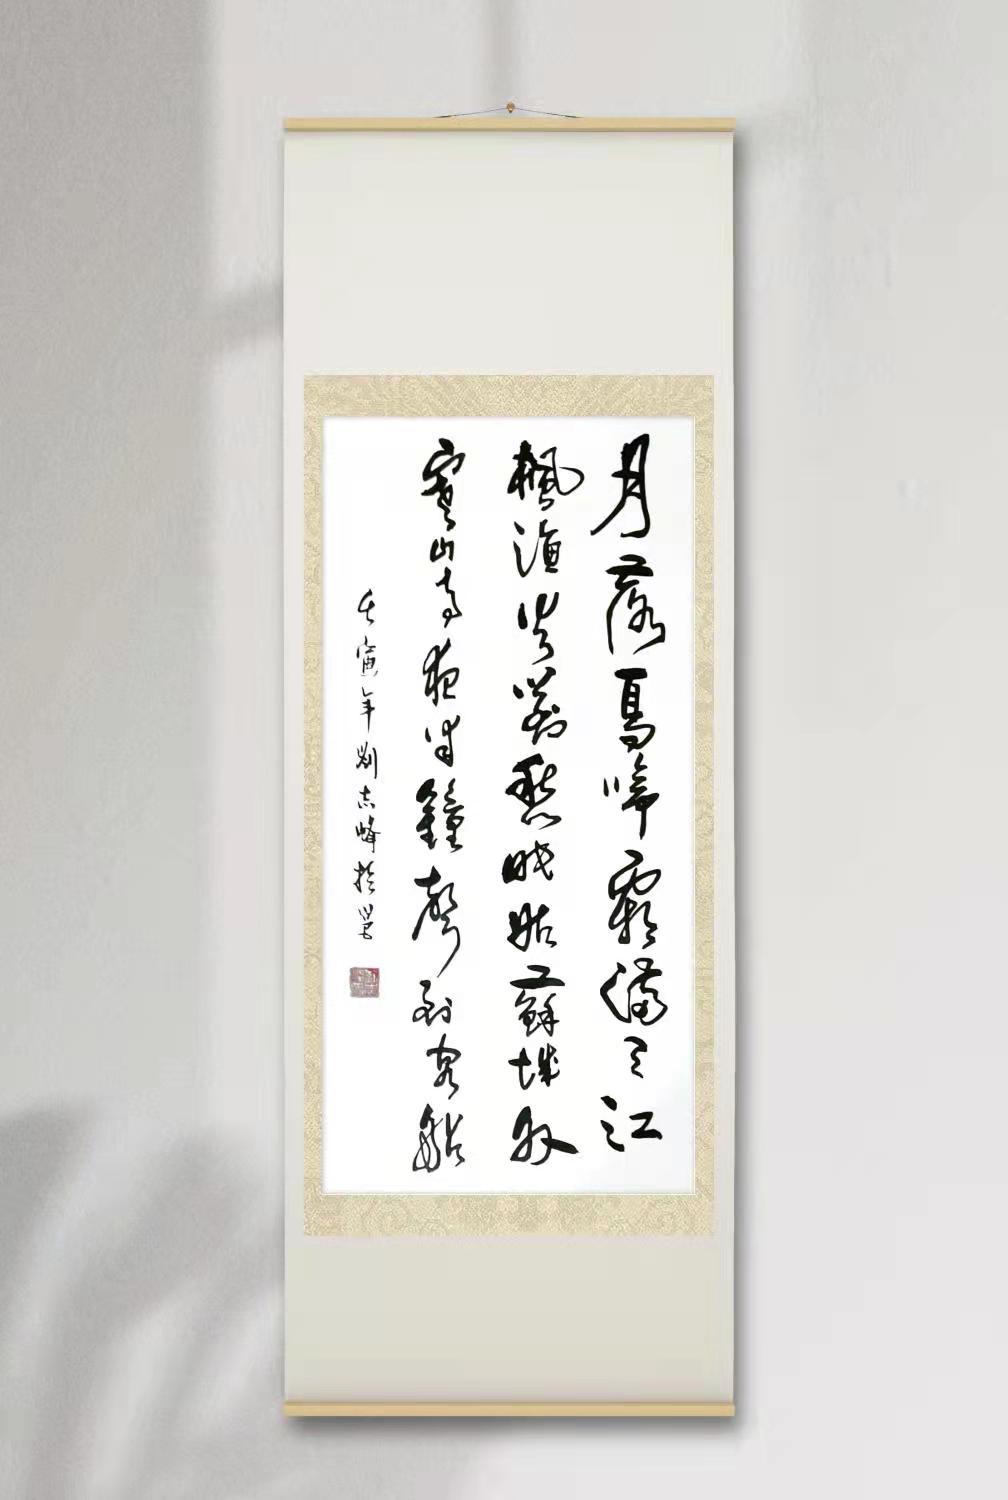 月落烏啼霜滿天江
楓漁火對愁眠姑蘇城外
寒山寺夜半鐘聲到客船
壬寅年劉志峰於